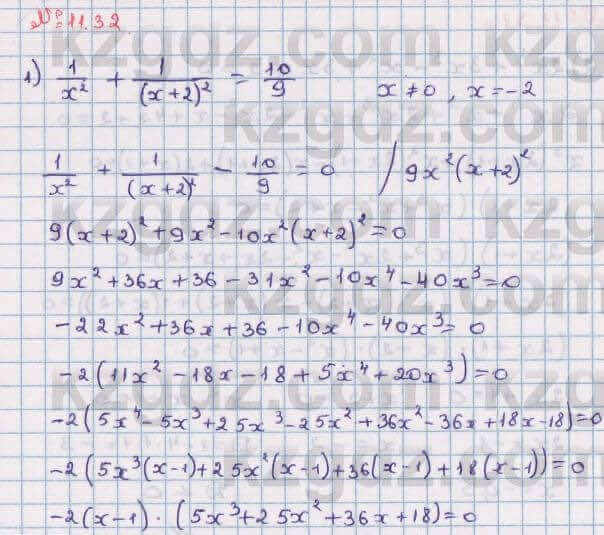 № 11.32
1) 1/x² + 1/(x+2)² = 10/9 x ≠ 0, x = -2
1/x² + 1/(x+2)² - 10/9 = 0 / 9x²(x+2)²
9(x+2)² + 9x² - 10x²(x+2)² = 0
9x² + 36x + 36 - 31x² - 10x⁴ - 40x³ = 0
-22x² + 36x + 36 - 10x⁴ - 40x³ = 0
-2(11x² - 18x - 18 + 5x⁴ + 20x³) = 0
-2(5x⁴ - 5x³ + 25x³ - 25x² + 36x² - 36x + 18x - 18) = 0
-2(5x³(x-1) + 25x²(x-1) + 36(x-1) + 18(x-1)) = 0
-2(x-1) · (5x³ + 25x² + 36x + 18) = 0
kzgdz.com